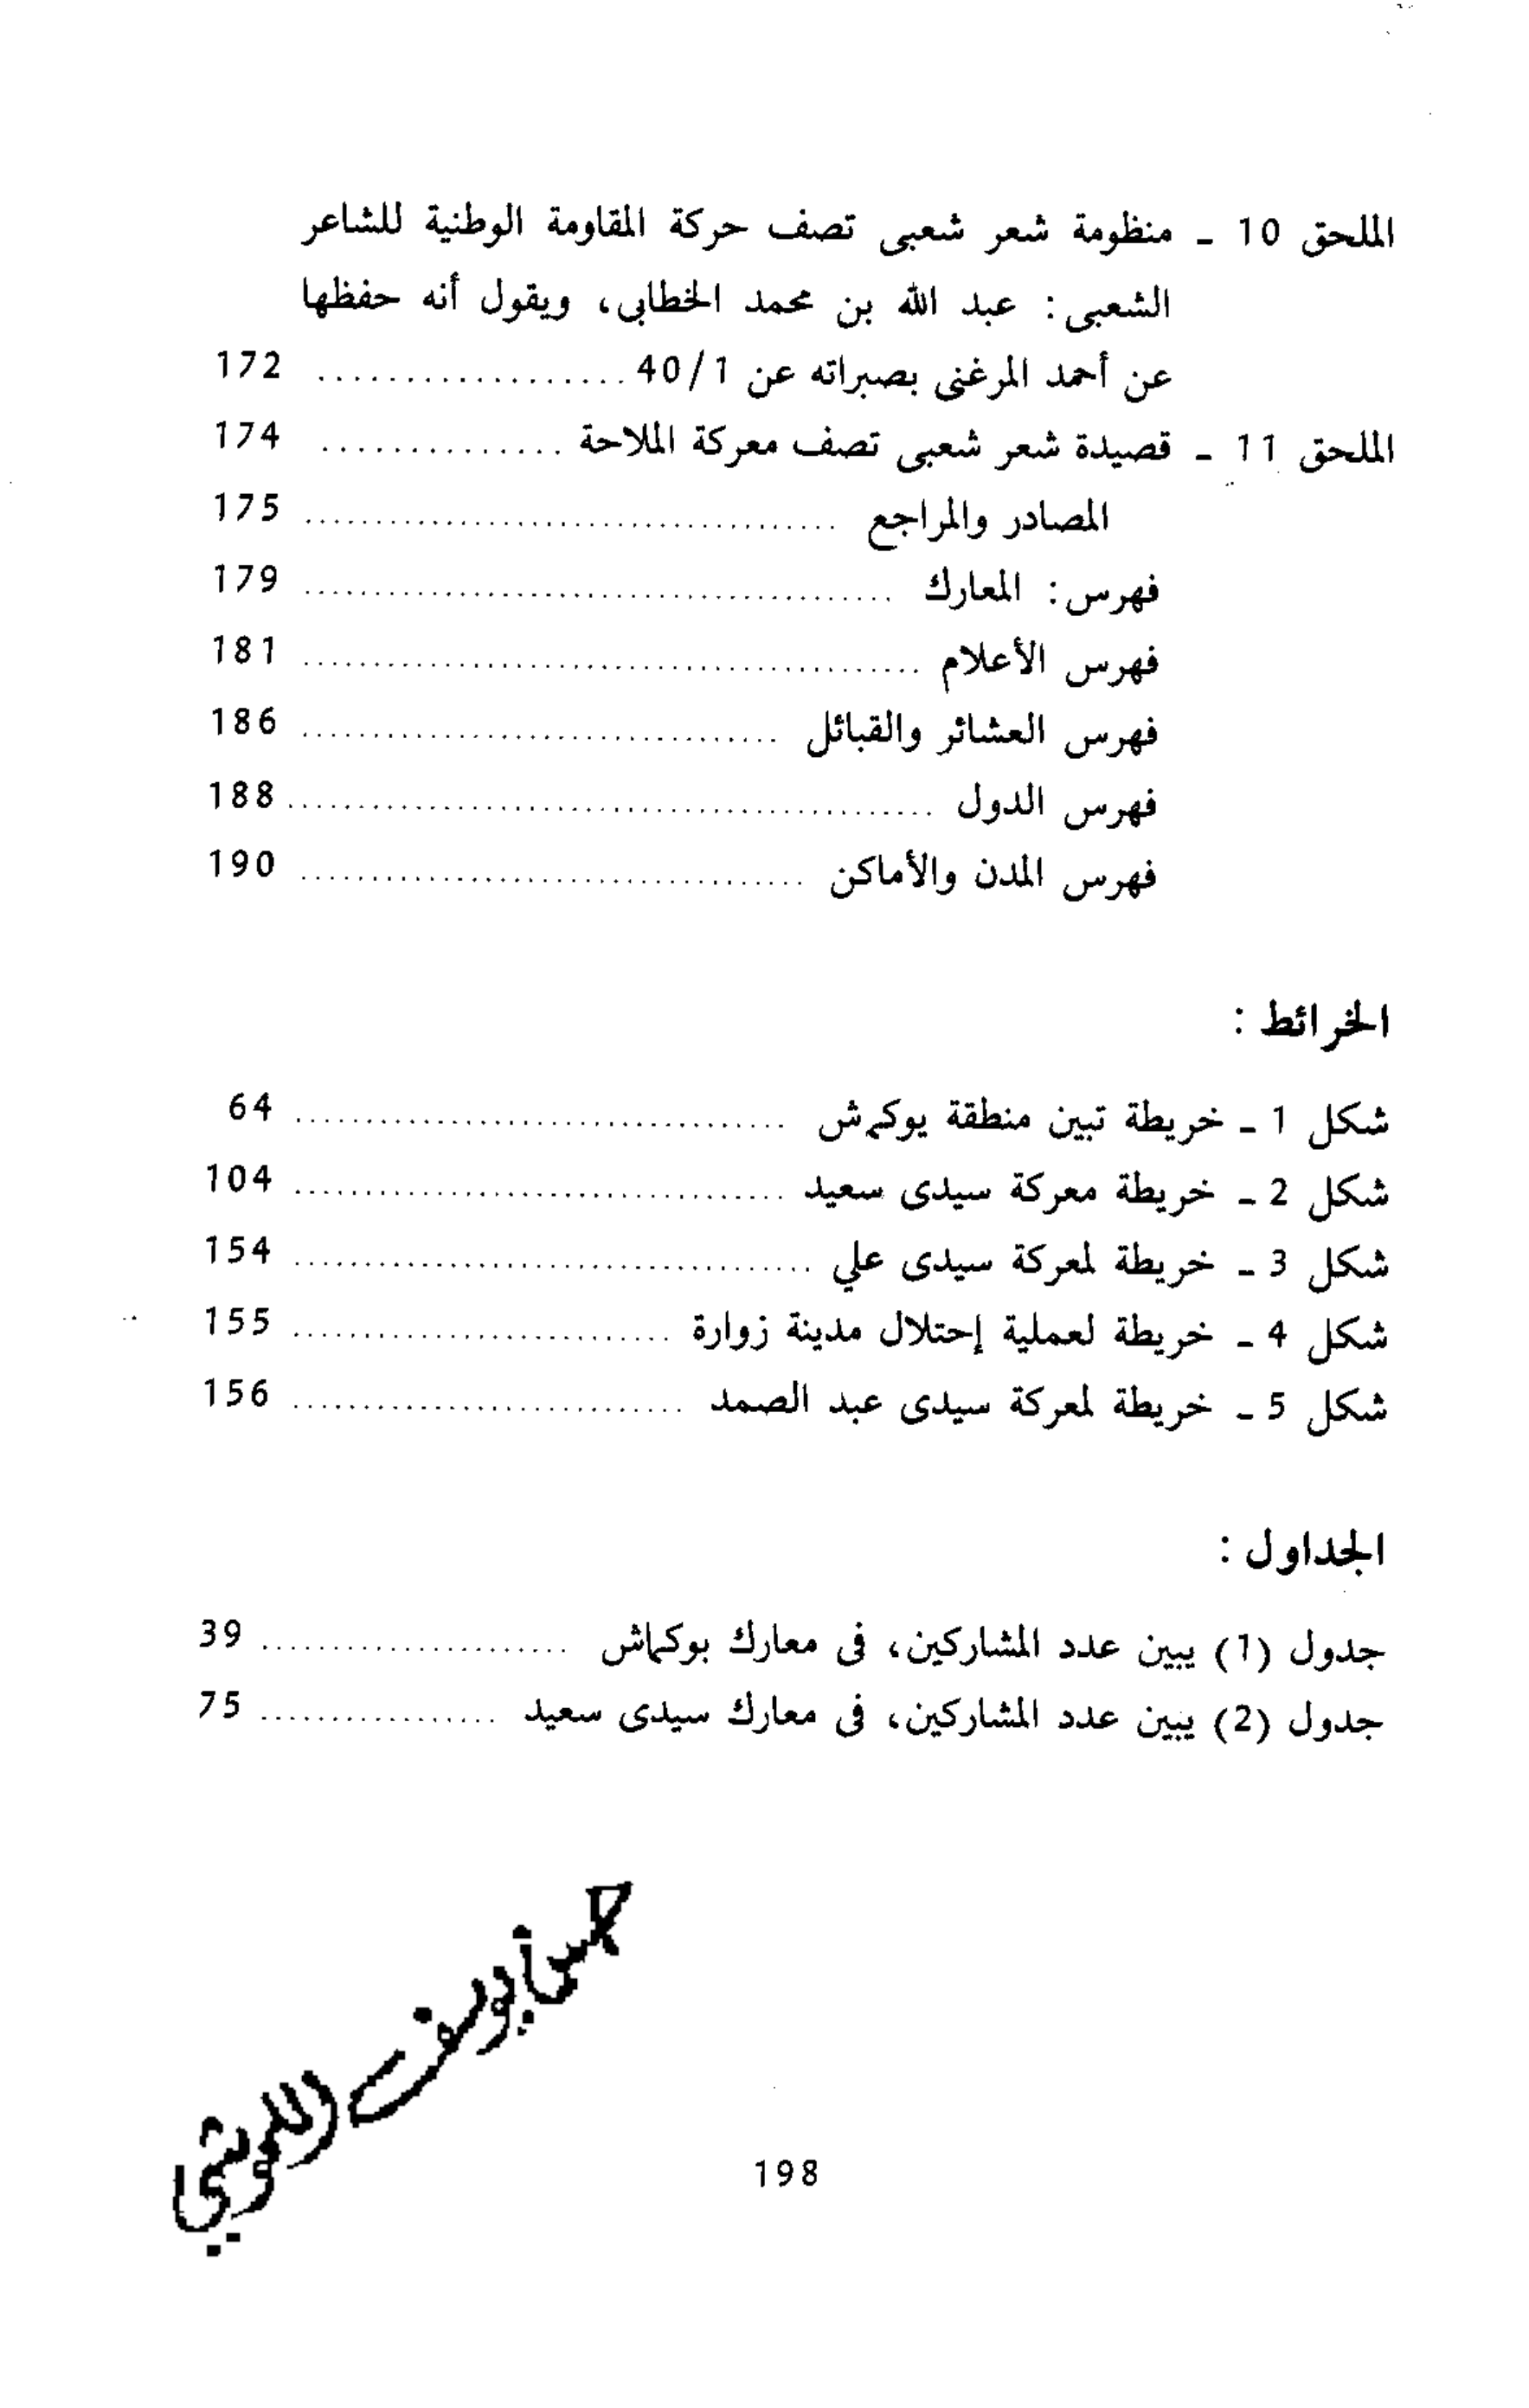 الملحق 10 ـ منظومة شعر شعبى تصف حركة المقاومة الوطنية للشاعر
الشعبى : عبد الله بن محمد الخطابى، ويقول أنه حفظها
عن أحمد المرغنى بصبراته عن 40/1 ..................... 172
الملحق 11 ـ قصيدة شعر شعبى تصف معركة الملاحة .............. 174
المصادر والمراجع ...................................... 175
فهرس : المعارك .......................................... 179
فهرس الأعلام ............................................ 181
فهرس العشائر والقبائل .................................. 186
فهرس الدول .............................................. 188
فهرس المدن والأماكن .................................... 190
الخرائط :
شكل 1 ـ خريطة تبين منطقة يوكمش ................................... 64
شكل 2 ـ خريطة معركة سيدى سعيد ................................... 104
شكل 3 ـ خريطة لمعركة سيدى علي ..................................... 154
شكل 4 ـ خريطة لعملية إحتلال مدينة زوارة ........................... 155
شكل 5 ـ خريطة لمعركة سيدى عبد الصمد ............................ 156
الجداول :
جدول (1) يبين عدد المشاركين، فى معارك بوكماش ...................... 39
جدول (2) يبين عدد المشاركين، فى معارك سيدى سعيد ................. 75
198